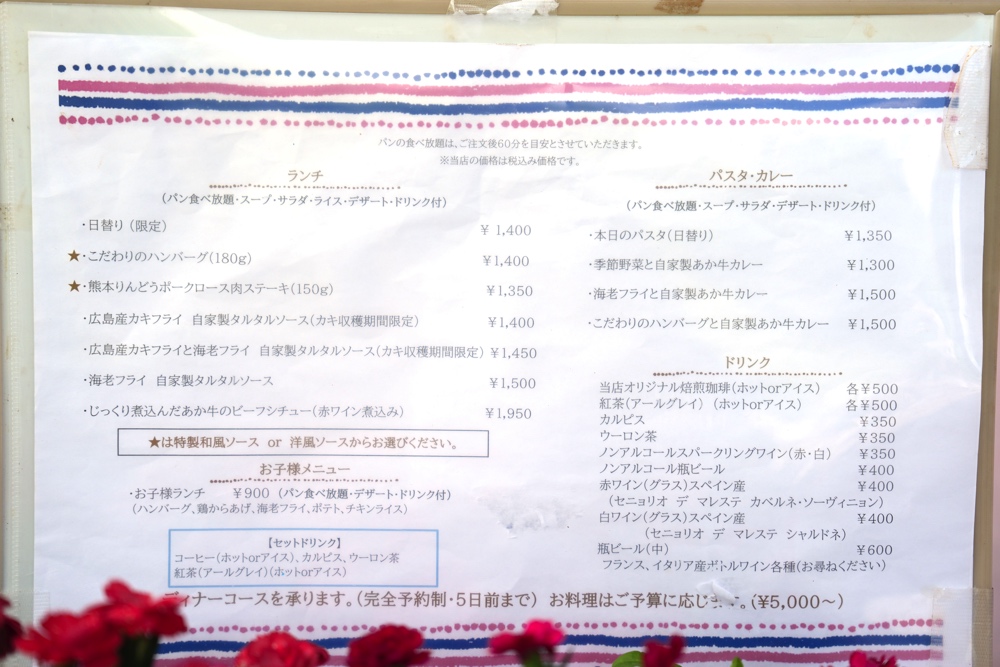 パンの食べ放題は、ご注文後60分を目安とさせていただきます。
※当店の価格は税込み価格です。
ランチ
(パン食べ放題・スープ・サラダ・ライス・デザート・ドリンク付)
・日替り (限定) ¥1,400
★・こだわりのハンバーグ(180g) ¥1,400
★・熊本りんどうポークロース肉ステーキ(150g) ¥1,350
・広島産カキフライ 自家製タルタルソース(カキ収穫期間限定) ¥1,400
・広島産カキフライと海老フライ 自家製タルタルソース(カキ収穫期間限定) ¥1,450
・海老フライ 自家製タルタルソース ¥1,500
・じっくり煮込んだあか牛のビーフシチュー(赤ワイン煮込み) ¥1,950
★は特製和風ソース or 洋風ソースからお選びください。
お子様メニュー
・お子様ランチ ¥900 (パン食べ放題・デザート・ドリンク付)
(ハンバーグ、鶏からあげ、海老フライ、ポテト、チキンライス)
【セットドリンク】
コーヒー(ホットorアイス)、カルピス、ウーロン茶
紅茶(アールグレイ)(ホットorアイス)
パスタ・カレー
(パン食べ放題・スープ・サラダ・デザート・ドリンク付)
・本日のパスタ(日替り) ¥1,350
・季節野菜と自家製あか牛カレー ¥1,300
・海老フライと自家製あか牛カレー ¥1,500
・こだわりのハンバーグと自家製あか牛カレー ¥1,500
ドリンク
当店オリジナル焙煎珈琲(ホットorアイス) 各¥500
紅茶(アールグレイ) (ホットorアイス) 各¥500
カルピス ¥350
ウーロン茶 ¥350
ノンアルコールスパークリングワイン(赤・白) ¥350
ノンアルコール瓶ビール ¥400
赤ワイン(グラス)スペイン産 ¥400
(セニョリオ デ マレステ カベルネ・ソーヴィニョン)
白ワイン(グラス)スペイン産 ¥400
(セニョリオ デ マレステ シャルドネ)
瓶ビール(中) ¥600
フランス、イタリア産ボトルワイン各種(お尋ねください)
ディナーコースを承ります。(完全予約制・5日前まで) お料理はご予算に応じます。(¥5,000～)